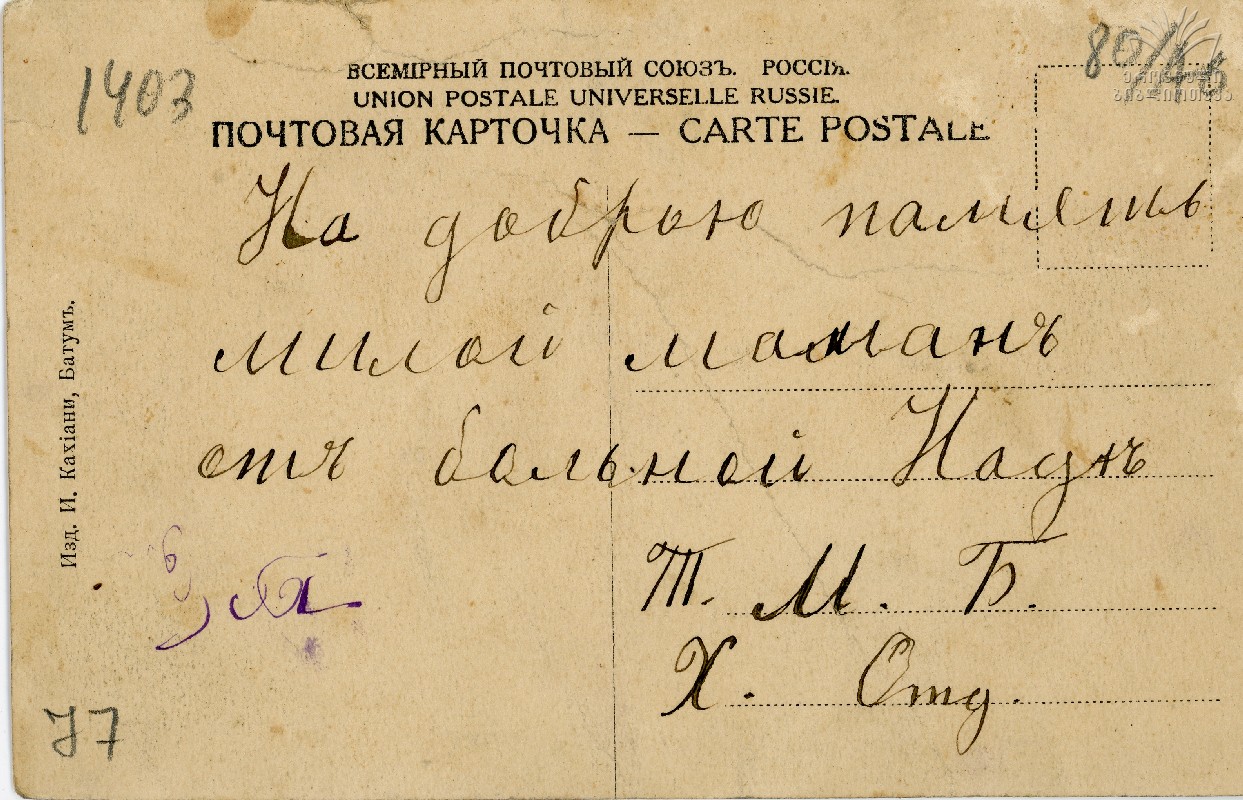 1403
ВСЕМIРНЫЙ ПОЧТОВЫЙ СОЮЗЪ. РОССIЯ.
UNION POSTALE UNIVERSELLE RUSSIE.
ПОЧТОВАЯ КАРТОЧКА — CARTE POSTALE
На добрую память
милой маманъ
отъ больной Надѣ
Т. М. Б.
Х. Отд.
Изд. И. Кахiани, Батумъ.